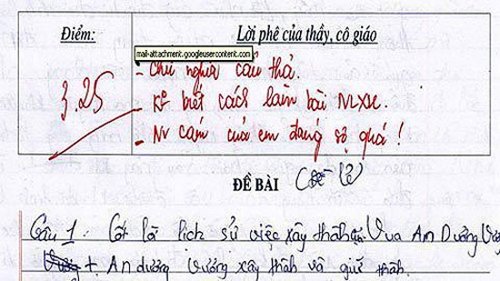 Điểm:
Lời phê của thầy, cô giáo
mail-attachment.googleusercontent.com
3.25
- Chữ nghĩa cẩu thả.
- Kº biết cách làm bài NLXH.
- tình cảm của em đáng sợ quá!
ĐỀ BÀI
Câu 1: Cốt lõi lịch sử việc xây thành của Vua An Dương Vương
+ An dương vương xây thành và giữ thành.